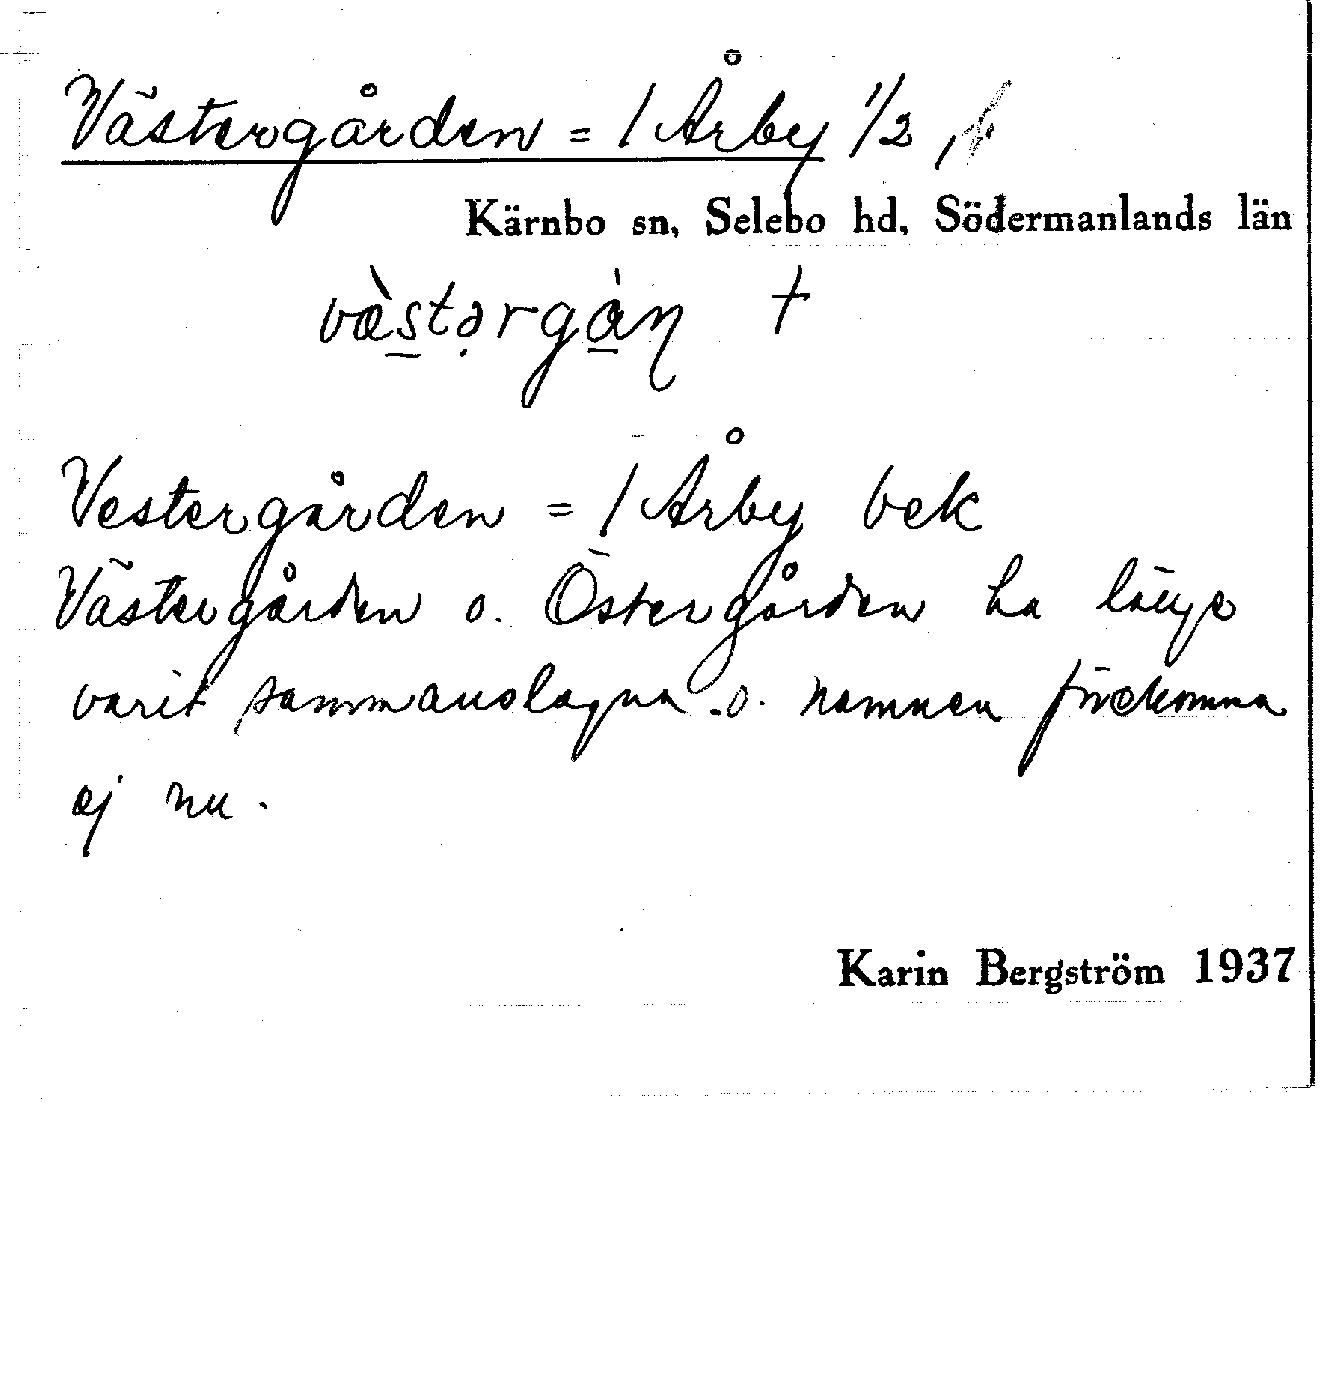 Västergården = / Årby 1/2,
Kärnbo sn, Selebo hd, Södermanlands län
væ̀stərgån †
Vestergården = / Årby bek
Västergården o. Östergården ha länge
varit sammanslagna o. namnen förekomma
ej nu.
Karin Bergström 1937